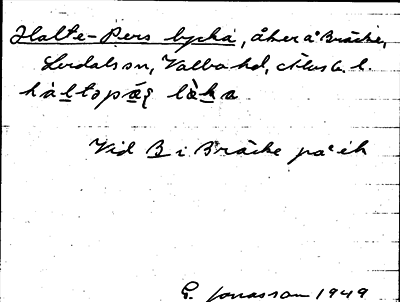 Halte-Pers lycka, åker å Bräcke,
Lerdals sn, Valbo hd, Älvsb. l.
hàltopæ̱ʂ lək̀a
Vid B i Bräcke på ek
G. Jonasson 1949